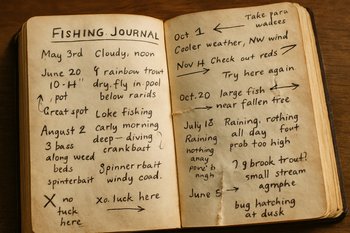 FISHING JOURNAL
May 3rd Cloudy, noon
June 20 9 rainbow trout
10-H" dry fly in pool
, pot below rarids
Great spot
Loke fishing
August 2 Carly morning
3 bass deep-diving
along weed crankbact
beds
spinterbait
Spinnerbait
windy coad.
X no luck here
xo. luck here
Oct. 1
Take para
wadees
Cooler weather, NW wind
Nov H Check out reds
Try here again
Oct. 20 large fish
near fallen tree
July 18 Raining. rothing
Raining all day font
nothing prob too high
anay
nigh
g brook trout?
small stream
agmphe
June 5
bug hatching
at dusk